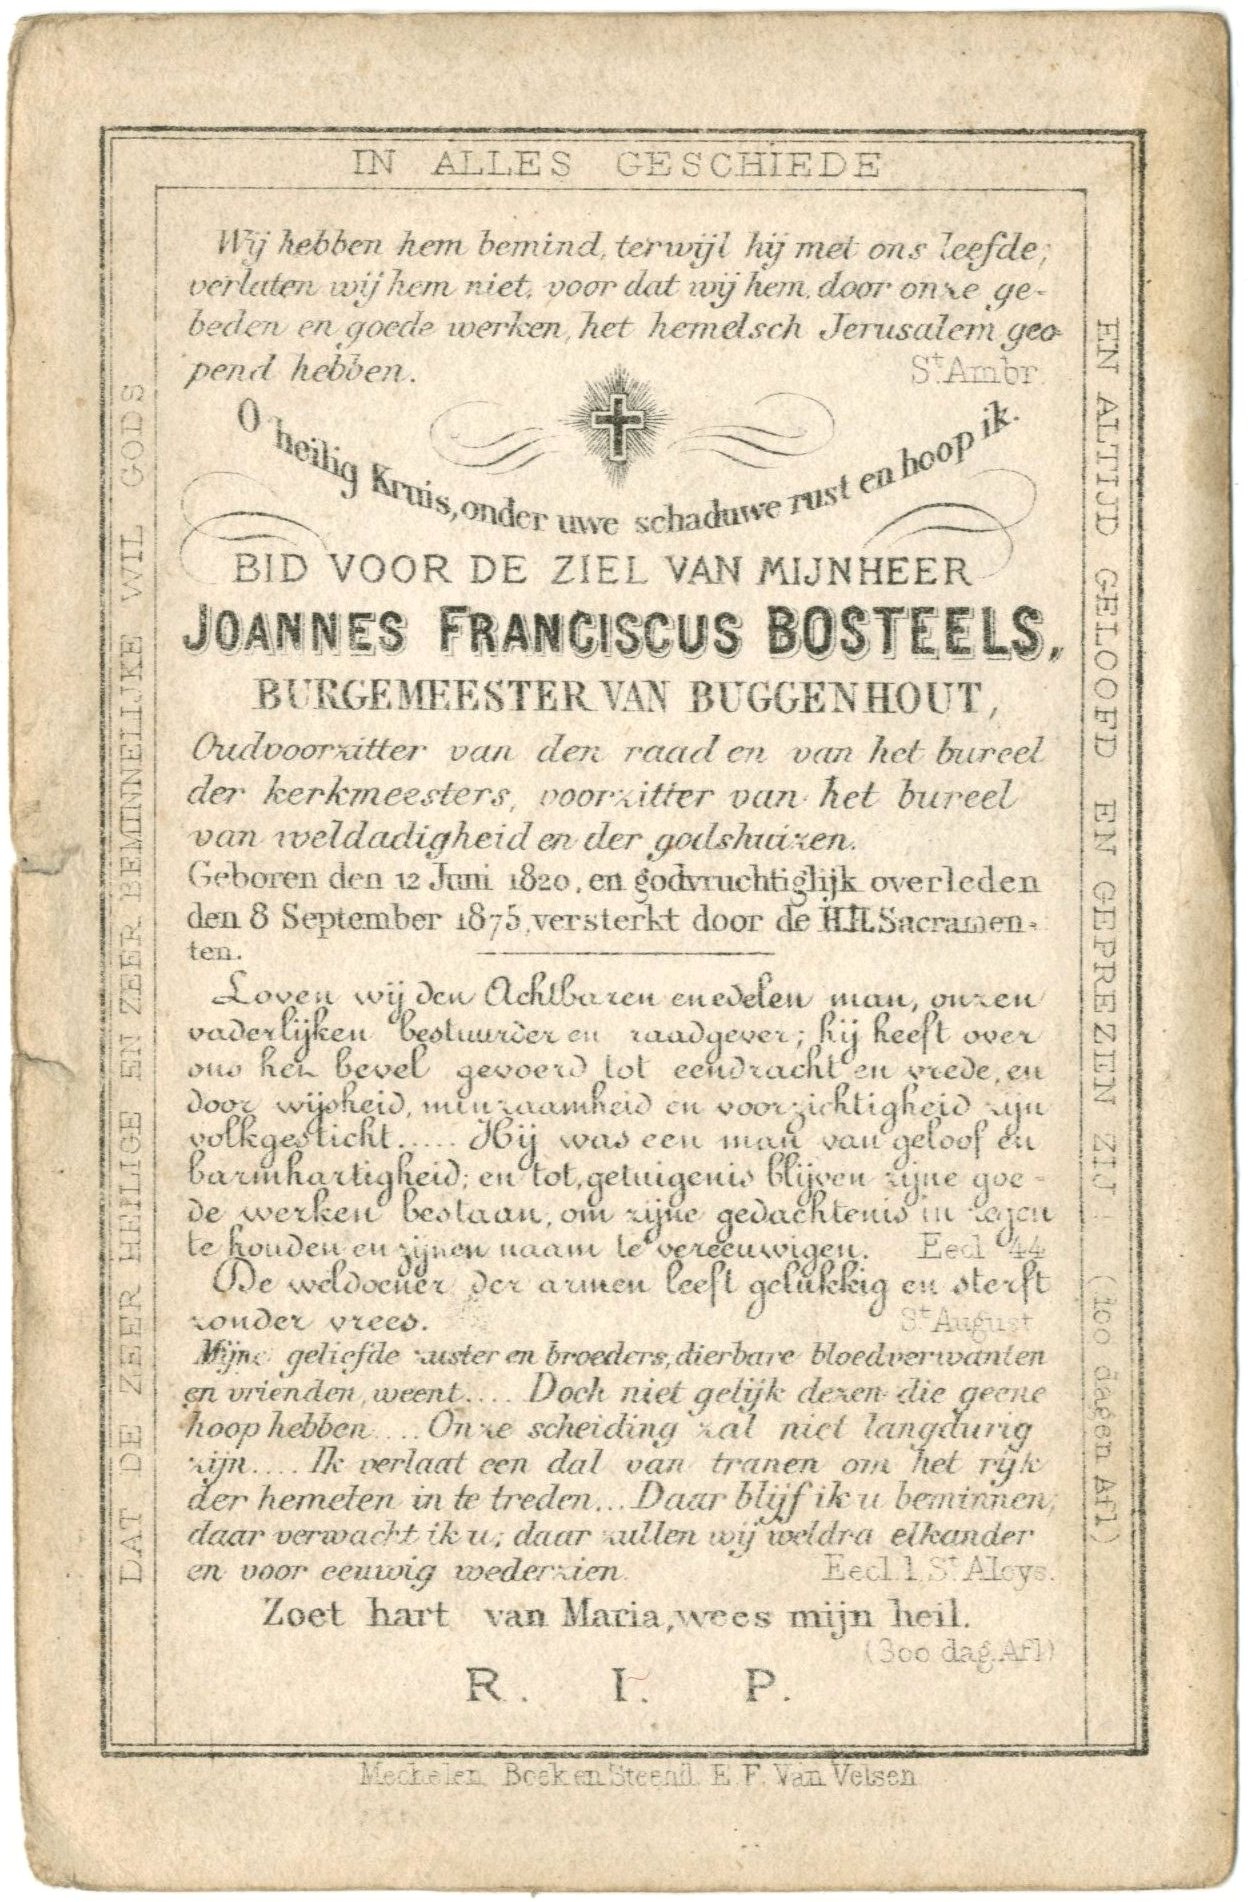 IN ALLES GESCHIEDE
DAT DE ZEER HEILIGE EN ZEER BEMINNELIJKE WIL GODS
EN ALTIJD GELOOFD EN GEPREZEN ZIJ! (100 dagen Afl)
Wij hebben hem bemind, terwijl hij met ons leefde;
verlaten wij hem niet, voor dat wij hem, door onze ge-
beden en goede werken, het hemelsch Jerusalem geo-
pend hebben. St Ambr.
O heilig Kruis, onder uwe schaduwe rust en hoop ik.
BID VOOR DE ZIEL VAN MIJNHEER
JOANNES FRANCISCUS BOSTEELS,
BURGEMEESTER VAN BUGGENHOUT,
Oudvoorzitter van den raad en van het bureel
der kerkmeesters, voorzitter van het bureel
van weldadigheid en der godshuizen.
Geboren den 12 Juni 1820, en godvruchtiglijk overleden
den 8 September 1875, versterkt door de H.H. Sacramen-
ten.
Loven wij den Achtbaren en edelen man, onzen
vaderlijken bestuurder en raadgever; hij heeft over
ons het bevel gevoerd tot eendracht en vrede, en
door wijsheid, minzaamheid en voorzichtigheid zijn
volk gesticht..... Hij was een man van geloof en
barmhartigheid; en tot getuigenis blijven zijne goe-
de werken bestaan, om zijne gedachtenis in zegen
te houden en zijnen naam te vereeuwigen. Eccl 44
De weldoener der armen leeft gelukkig en sterft
zonder vrees. St August
Mijne geliefde zuster en broeders, dierbare bloedverwanten
en vrienden, weent.... Doch niet gelijk dezen die geene
hoop hebben.... Onze scheiding zal niet langdurig
zijn.... Ik verlaat een dal van tranen om het rijk
der hemelen in te treden... Daar blijf ik u beminnen;
daar verwacht ik u; daar zullen wij weldra elkander
en voor eeuwig wederzien. Eccl. 1, St Aloys.
Zoet hart van Maria, wees mijn heil.
(300 dag. Afl)
R. I. P.
Mechelen, Boek en Steend. E. F. Van Velsen